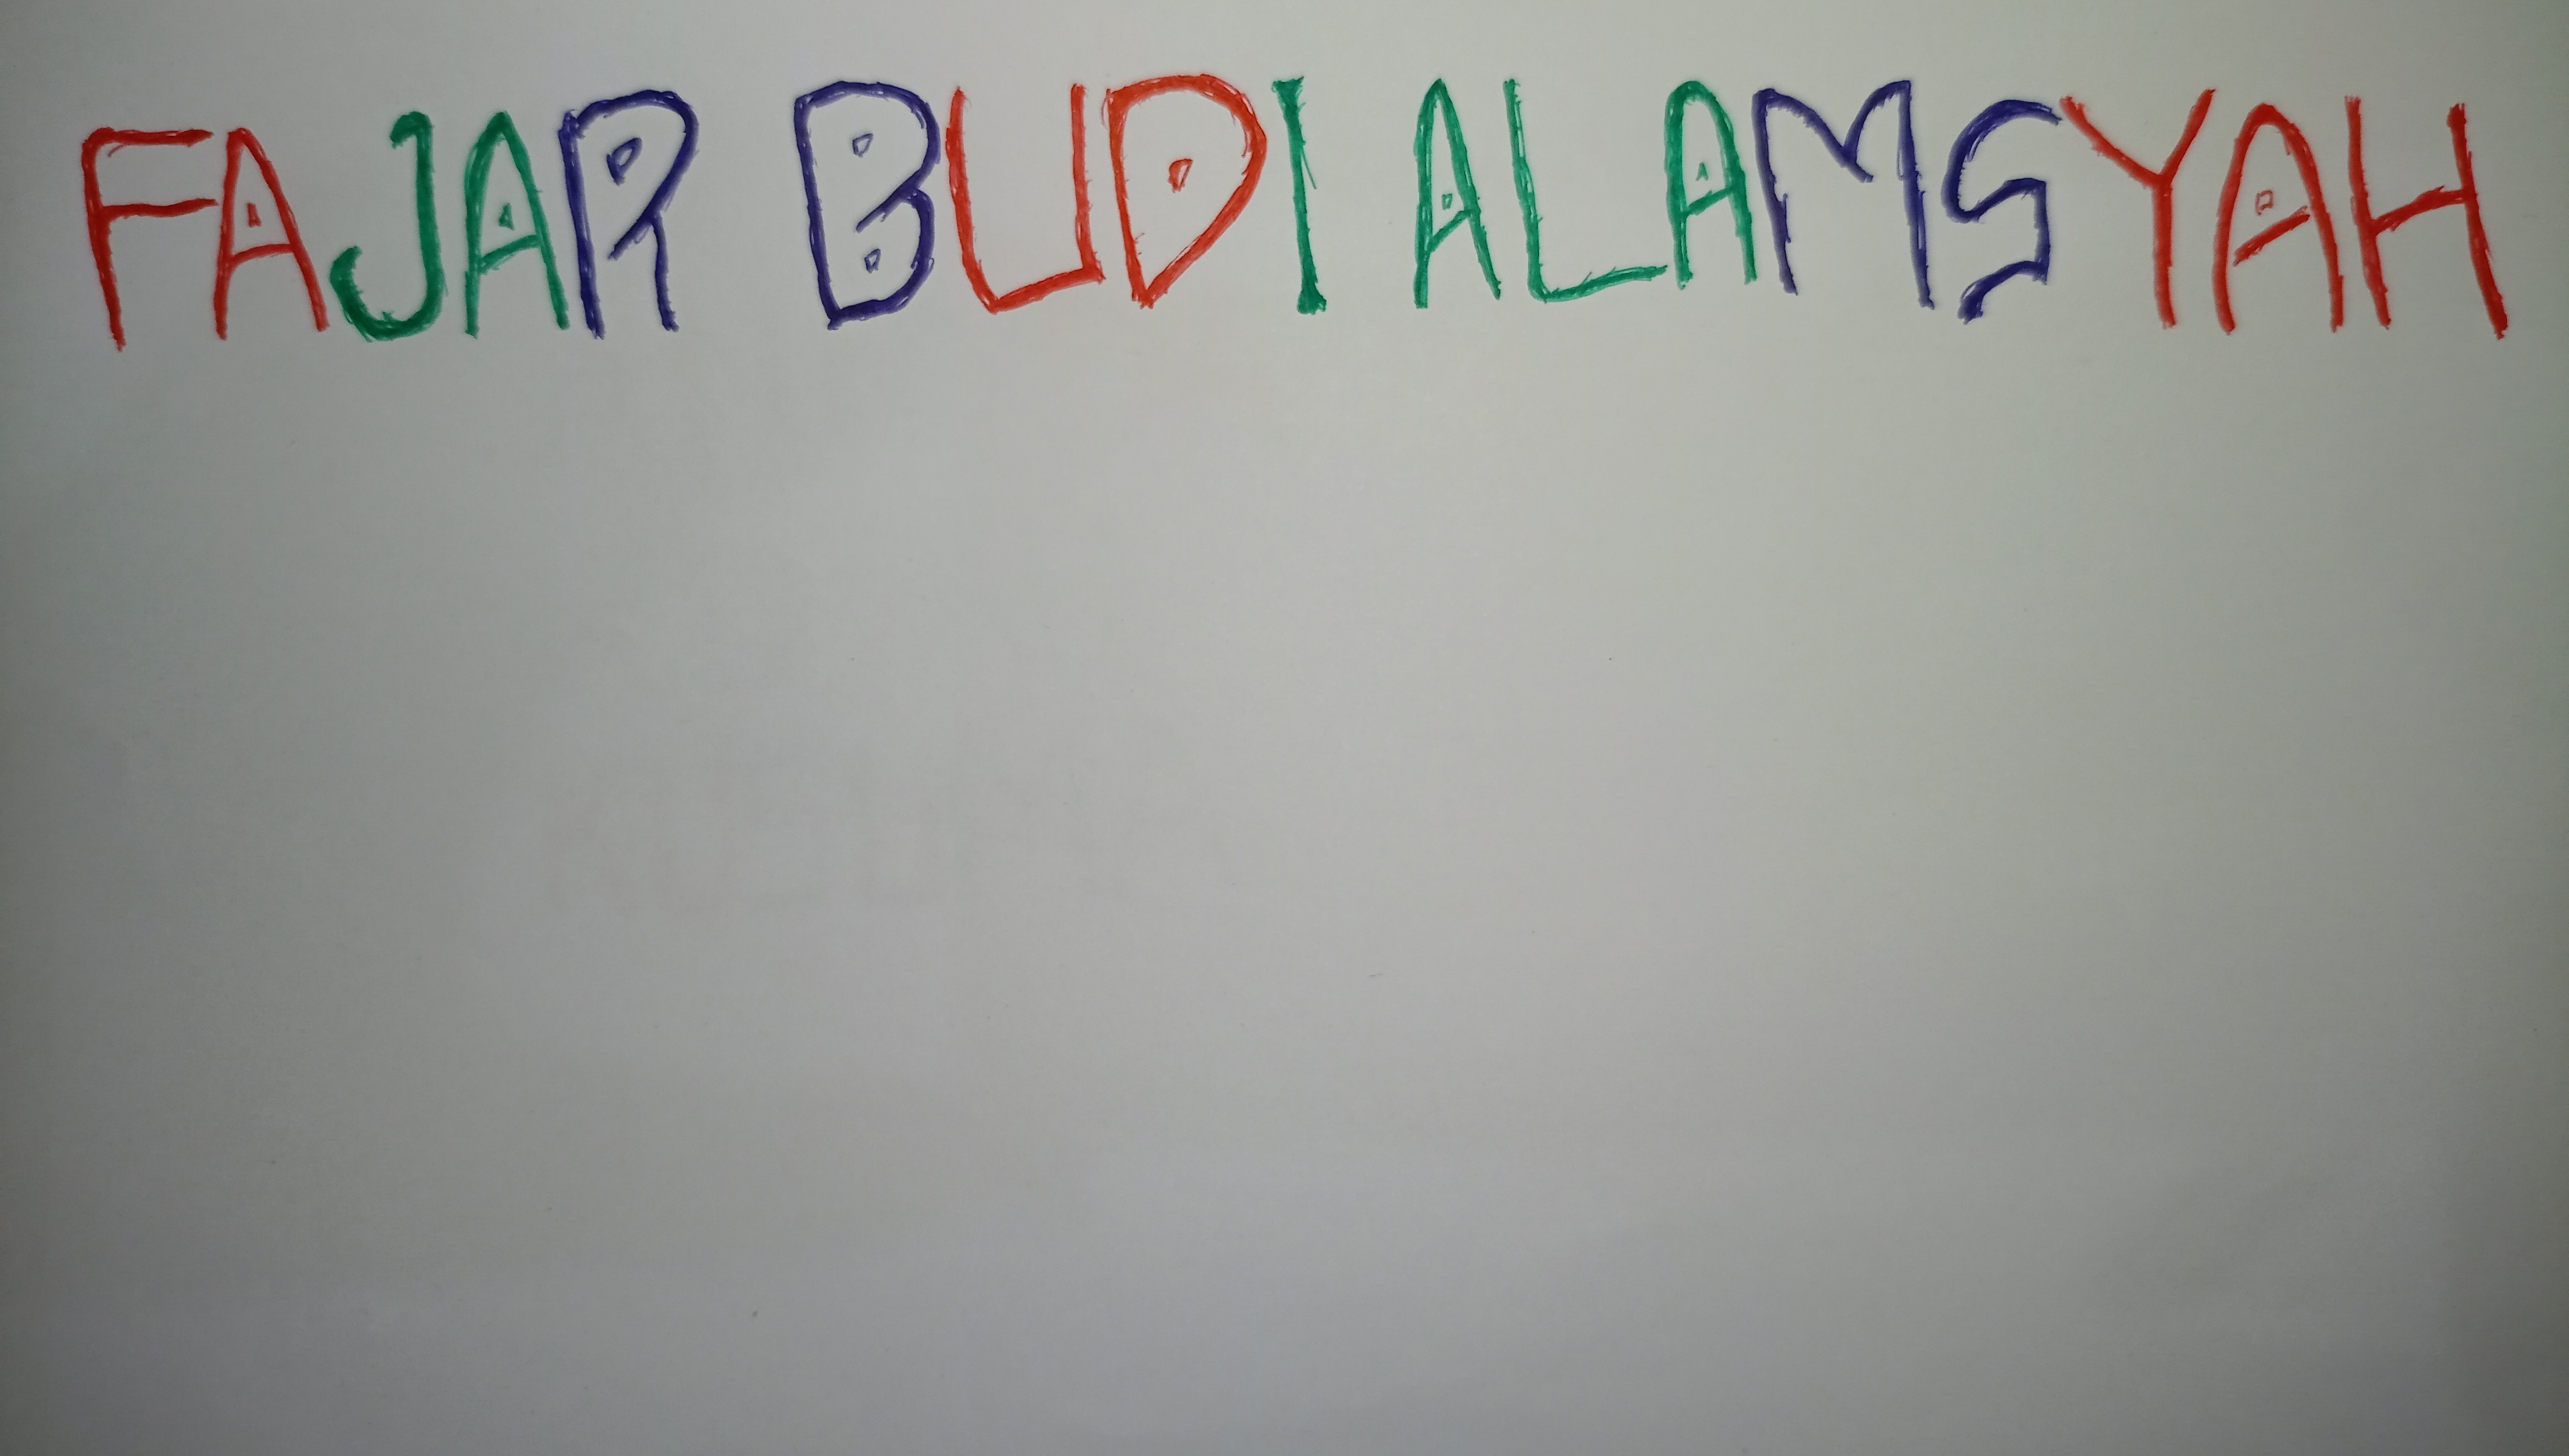 FAJAR BUDI ALAMSYAH